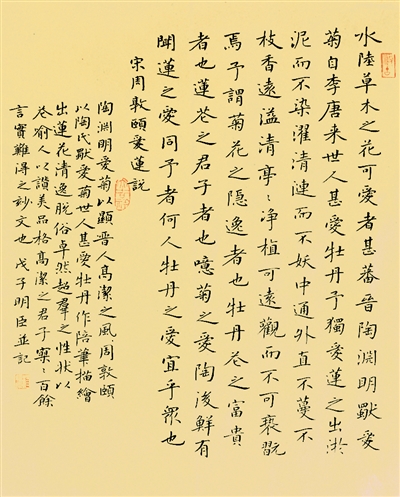 水陸草木之花可愛者甚蕃晉陶淵明獨愛
菊自李唐来世人甚愛牡丹予獨愛蓮之出淤
泥而不染濯清漣而不妖中通外直不蔓不
枝香遠溢清亭〻净植可遠觀而不可褻翫
焉予謂菊花之隐逸者也牡丹花之富貴
者也蓮花之君子者也噫菊之愛陶後鮮有
聞蓮之愛同予者何人牡丹之愛宜乎眾也
宋周敦頤愛蓮説
陶淵明愛菊以顯晋人高潔之風周敦頤
以陶氏獨愛菊世人甚愛牡丹作陪筆描繪
出蓮花清逸脱俗卓然超羣之性狀以
花喻人以讚美品格高潔之君子寥〻百餘
言實難得之妙文也戊子明臣並記